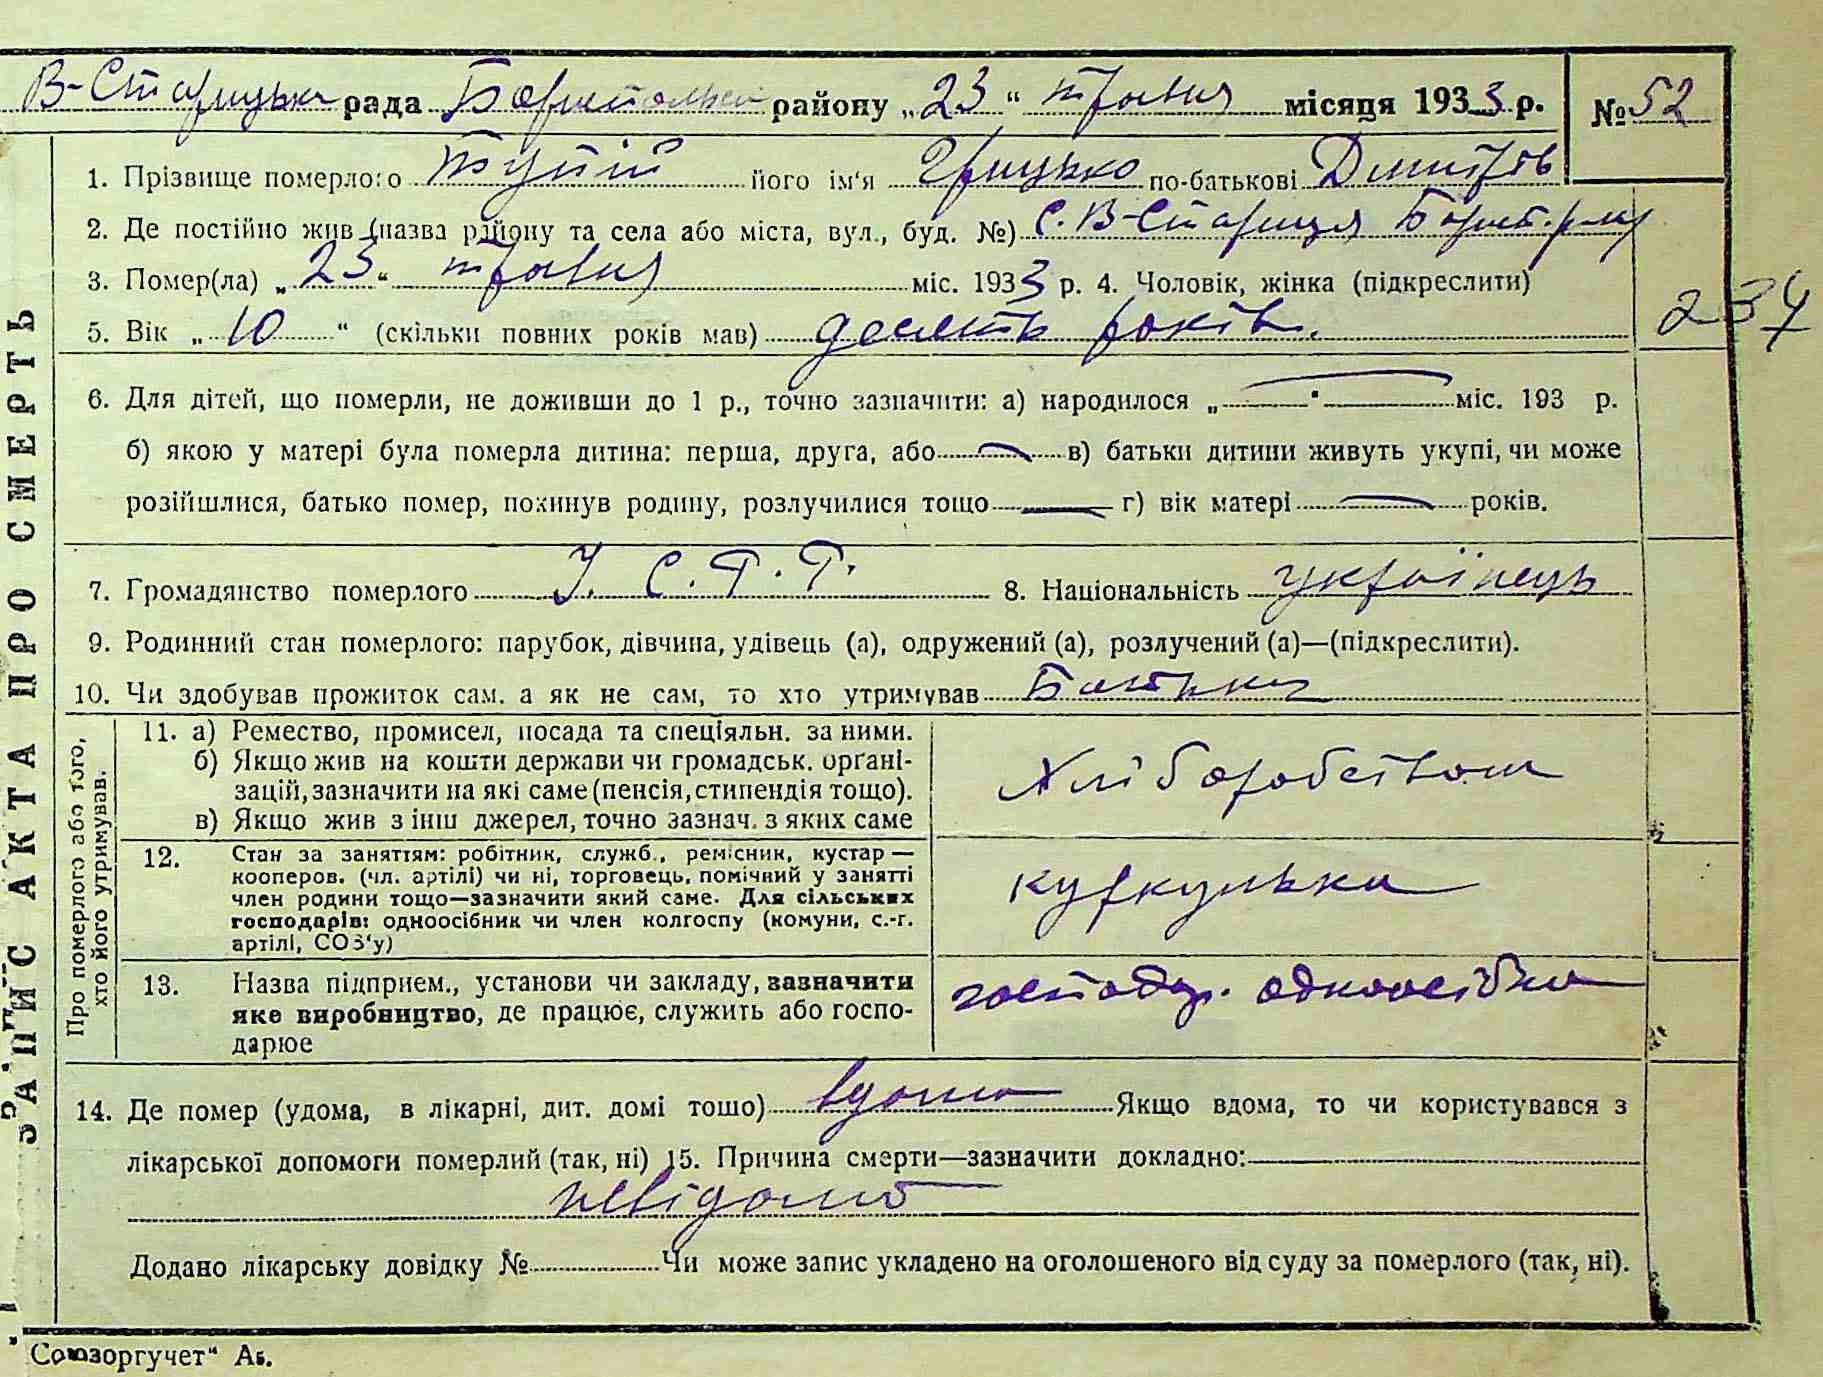 В-Старицька рада Бориспольськ району „23“ травня місяця 1933 р. №52
1. Прізвище померлого Тупій його ім'я Грицько по-батькові Дмитров
2. Де постійно жив (назва району та села або міста, вул., буд. №) с. В-Стариця Борисп. р-ну
3. Помер(ла) „23“ травня міс. 1933 р. 4. Чоловік, жінка (підкреслити)
234
5. Вік „10“ (скільки повних років мав) десять років.
6. Для дітей, що померли, не доживши до 1 р., точно зазначити: а) народилося „—“— міс. 193 р.
б) якою у матері була померла дитина: перша, друга, або — в) батьки дитини живуть укупі, чи може
розійшлися, батько помер, покинув родину, розлучилися тощо — г) вік матері — років.
7. Громадянство померлого У. С. Р. Р. 8. Національність українець
9. Родинний стан померлого: парубок, дівчина, удівець (а), одружений (а), розлучений (а)—(підкреслити).
10. Чи здобував прожиток сам, а як не сам, то хто утримував Батьки
ЗАПИС АКТА ПРО СМЕРТЬ
Про померлого або того,
хто його утримував.
11. а) Ремество, промисел, посада та спеціяльн. за ними.
б) Якщо жив на кошти держави чи громадськ. органі-
зацій, зазначити на які саме (пенсія, стипендія тощо).
в) Якщо жив з інш джерел, точно зазнач. з яких саме
Хліборобством
12. Стан за заняттям: робітник, служб., ремісник, кустар —
кооперов. (чл. артілі) чи ні, торговець, помічний у занятті
член родини тощо—зазначити який саме. Для сільських
господарів: одноосібник чи член колгоспу (комуни, с.-г.
артілі, СОЗ'у)
куркулька
13. Назва підприєм., установи чи закладу, зазначити
яке виробництво, де працює, служить або госпо-
дарює
господар. одноосібна
14. Де помер (удома, в лікарні, дит. домі тощо) вдома Якщо вдома, то чи користувався з
лікарської допомоги померлий (так, ні) 15. Причина смерти—зазначити докладно:
невідомо
Додано лікарську довідку № Чи може запис укладено на оголошеного від суду за померлого (так, ні).
Союзоргучет“ Аб.